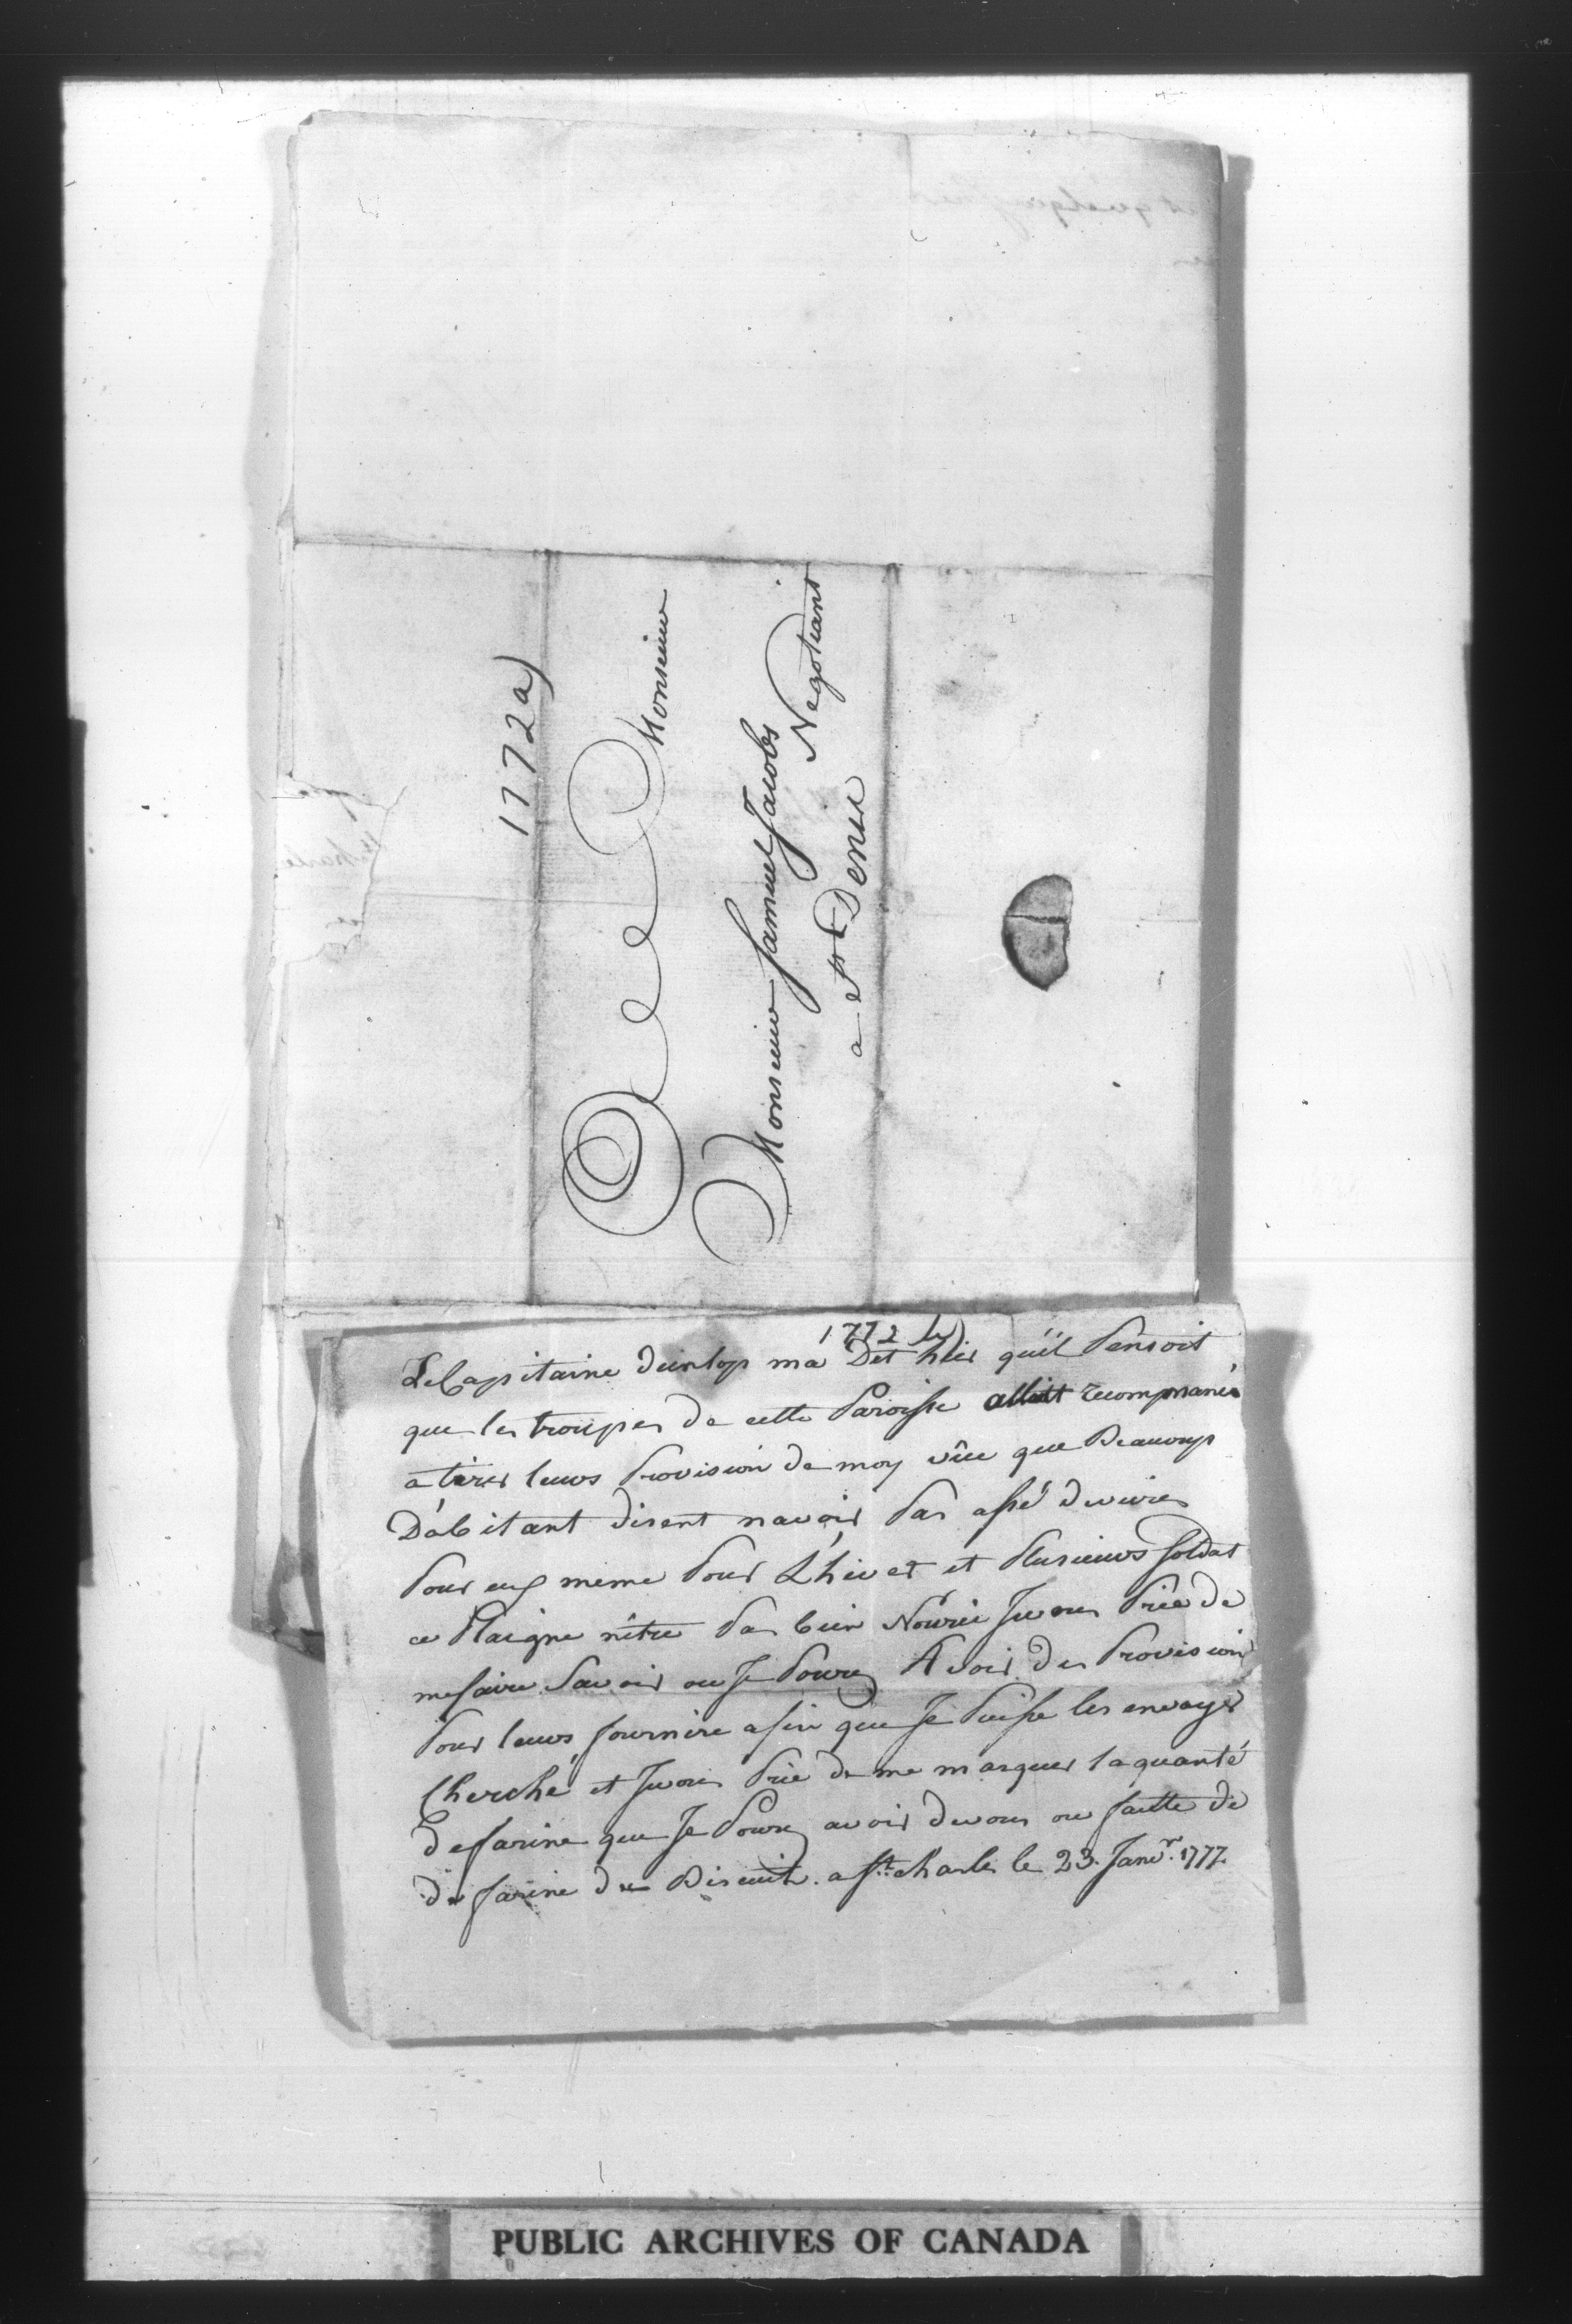 1772a)
Monsieur
Monsieur Samuel Jacobs
Negotiant
a St Denis
1772 b)
Le Capitaine dunlop ma Det hier quil Pensoit
que les troupes de cette Paroisse alloit recompmancé
a tirer leurs Provision de moy vûe que Beaucoup
Dabitant disent navoir Pas assé de vivres
Pour eux meme Pour L'hiver et Plusieurs soldat
ce Plaigne nêtre Pas bien Nourie Je vous Prie de
me faire Savoir ou Je Pourez Avoir des Provision
Pour leurs fournire afin que Je Puisse les envoyer
Cherché et Je vous Prie de me marquer la quanté
de farine que Je Pourez avoir de vous ou fautte de
de farine du Biscuit. a St Charles le 23. Janvr. 1777.
PUBLIC ARCHIVES OF CANADA